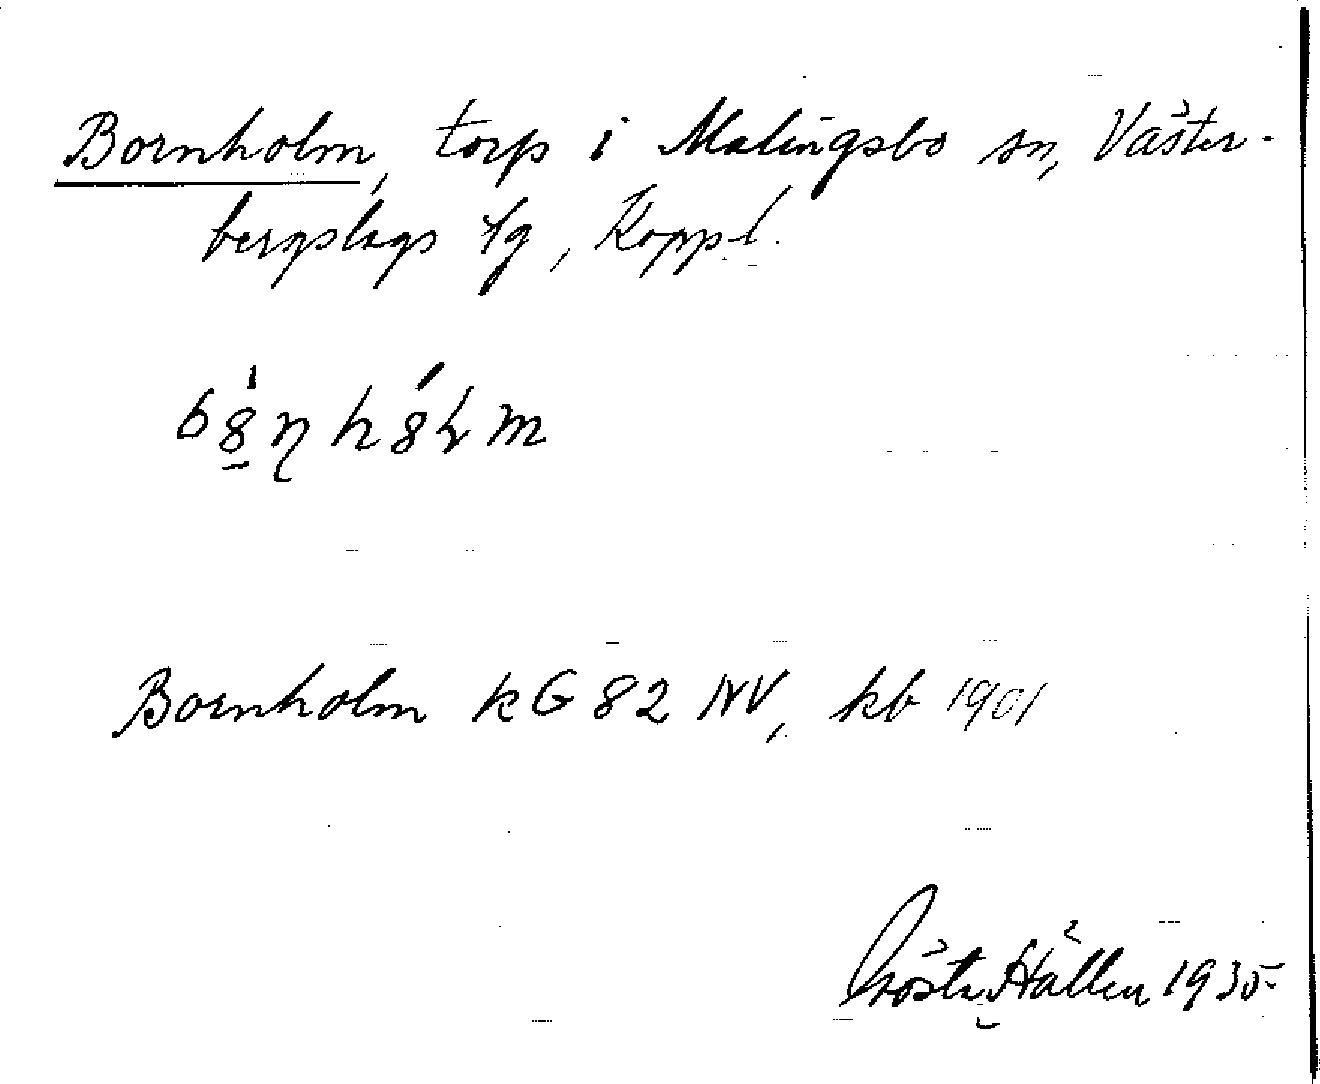 Bornholm, torp i Malingsbo sn, Väster-
bergslags tg, Kopp. l.
Bornholm kG 82 NV, kb 1901
Gösta Hállen 1935